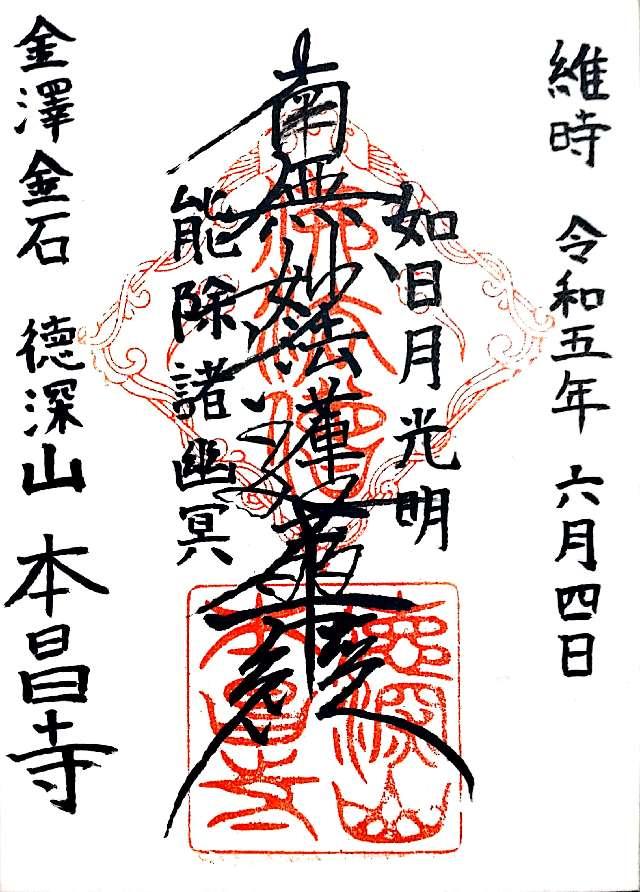 維時 令和五年 六月四日
如日月光明
南無妙法蓮華経
能除諸幽冥
金澤金石 徳深山 本昌寺
徳深山
本昌寺